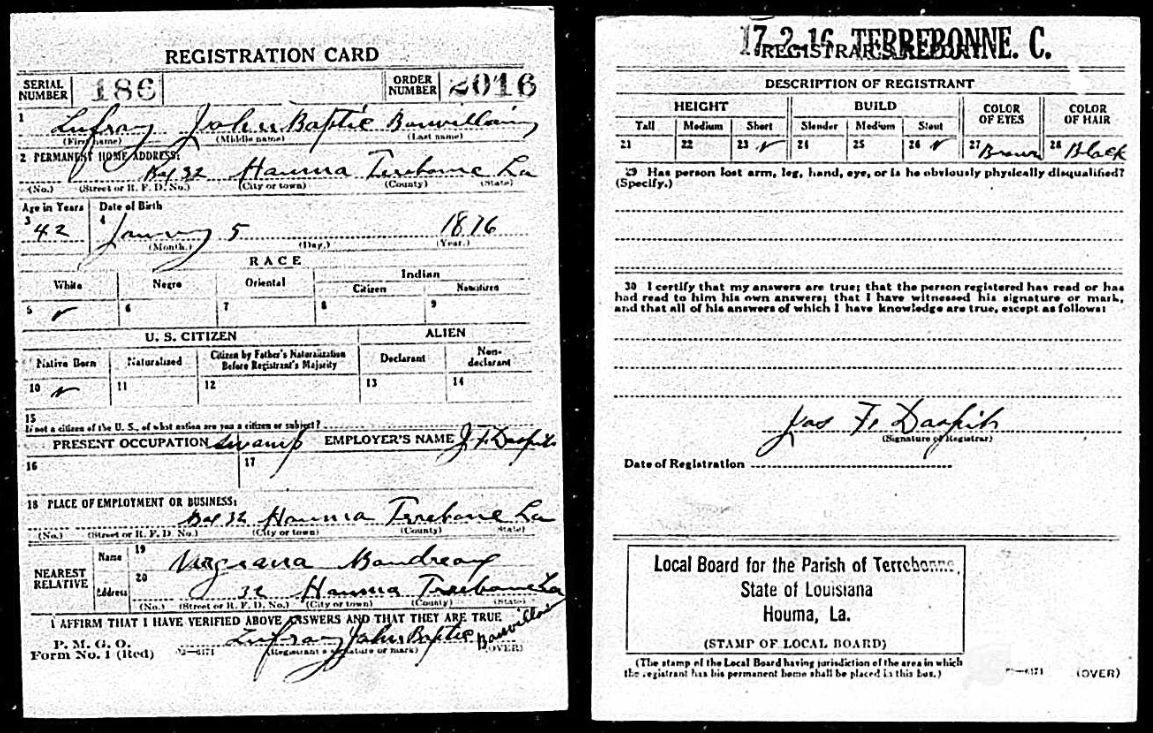 REGISTRATION CARD
SERIAL NUMBER 186 ORDER NUMBER 2016
1 Lufray John Baptie Bonvillain
(First name) (Middle name) (Last name)
2 PERMANENT HOME ADDRESS:
Box 32 Houma Terrebone La
(No.) (Street or R. F. D. No.) (City or town) (County) (State)
Age in Years Date of Birth
3 4
42 January 5 1876
(Month.) (Day.) (Year.)
RACE
White Negro Oriental Indian
Citizen Noncitizen
5 6 7 8 9
U. S. CITIZEN ALIEN
Native Born Naturalized Citizen by Father's Naturalization Before Registrant's Majority Declarant Non-declarant
10 11 12 13 14
15
If not a citizen of the U. S., of what nation are you a citizen or subject?
PRESENT OCCUPATION Swamp EMPLOYER'S NAME J. F. Daspit
16 17
18 PLACE OF EMPLOYMENT OR BUSINESS:
Box 32 Houma Terrebone La
(No.) (Street or R. F. D. No.) (City or town) (County) (State)
NEAREST RELATIVE
Name 19 Boudreaux
Address 20 32 Houma Terrebone La
(No.) (Street or R. F. D. No.) (City or town) (County) (State)
I AFFIRM THAT I HAVE VERIFIED ABOVE ANSWERS AND THAT THEY ARE TRUE
P. M. G. O.
Form No. 1 (Red) Lufray John Baptie Bonvillain
(Registrant's signature or mark) (OVER)
17 2 16 TERREBONNE. C.
REGISTRAR'S REPORT
DESCRIPTION OF REGISTRANT
HEIGHT BUILD COLOR OF EYES COLOR OF HAIR
Tall Medium Short Slender Medium Stout
21 22 23 24 25 26 27 Brown 28 Black
29 Has person lost arm, leg, hand, eye, or is he obviously physically disqualified?
(Specify.)
30 I certify that my answers are true; that the person registered has read or has
had read to him his own answers; that I have witnessed his signature or mark,
and that all of his answers of which I have knowledge are true, except as follows:
Jas F. Daspit
(Signature of Registrar)
Date of Registration
Local Board for the Parish of Terrebonne,
State of Louisiana
Houma, La.
(STAMP OF LOCAL BOARD)
(The stamp of the Local Board having jurisdiction of the area in which
the registrant has his permanent home shall be placed in this box.)
(OVER)